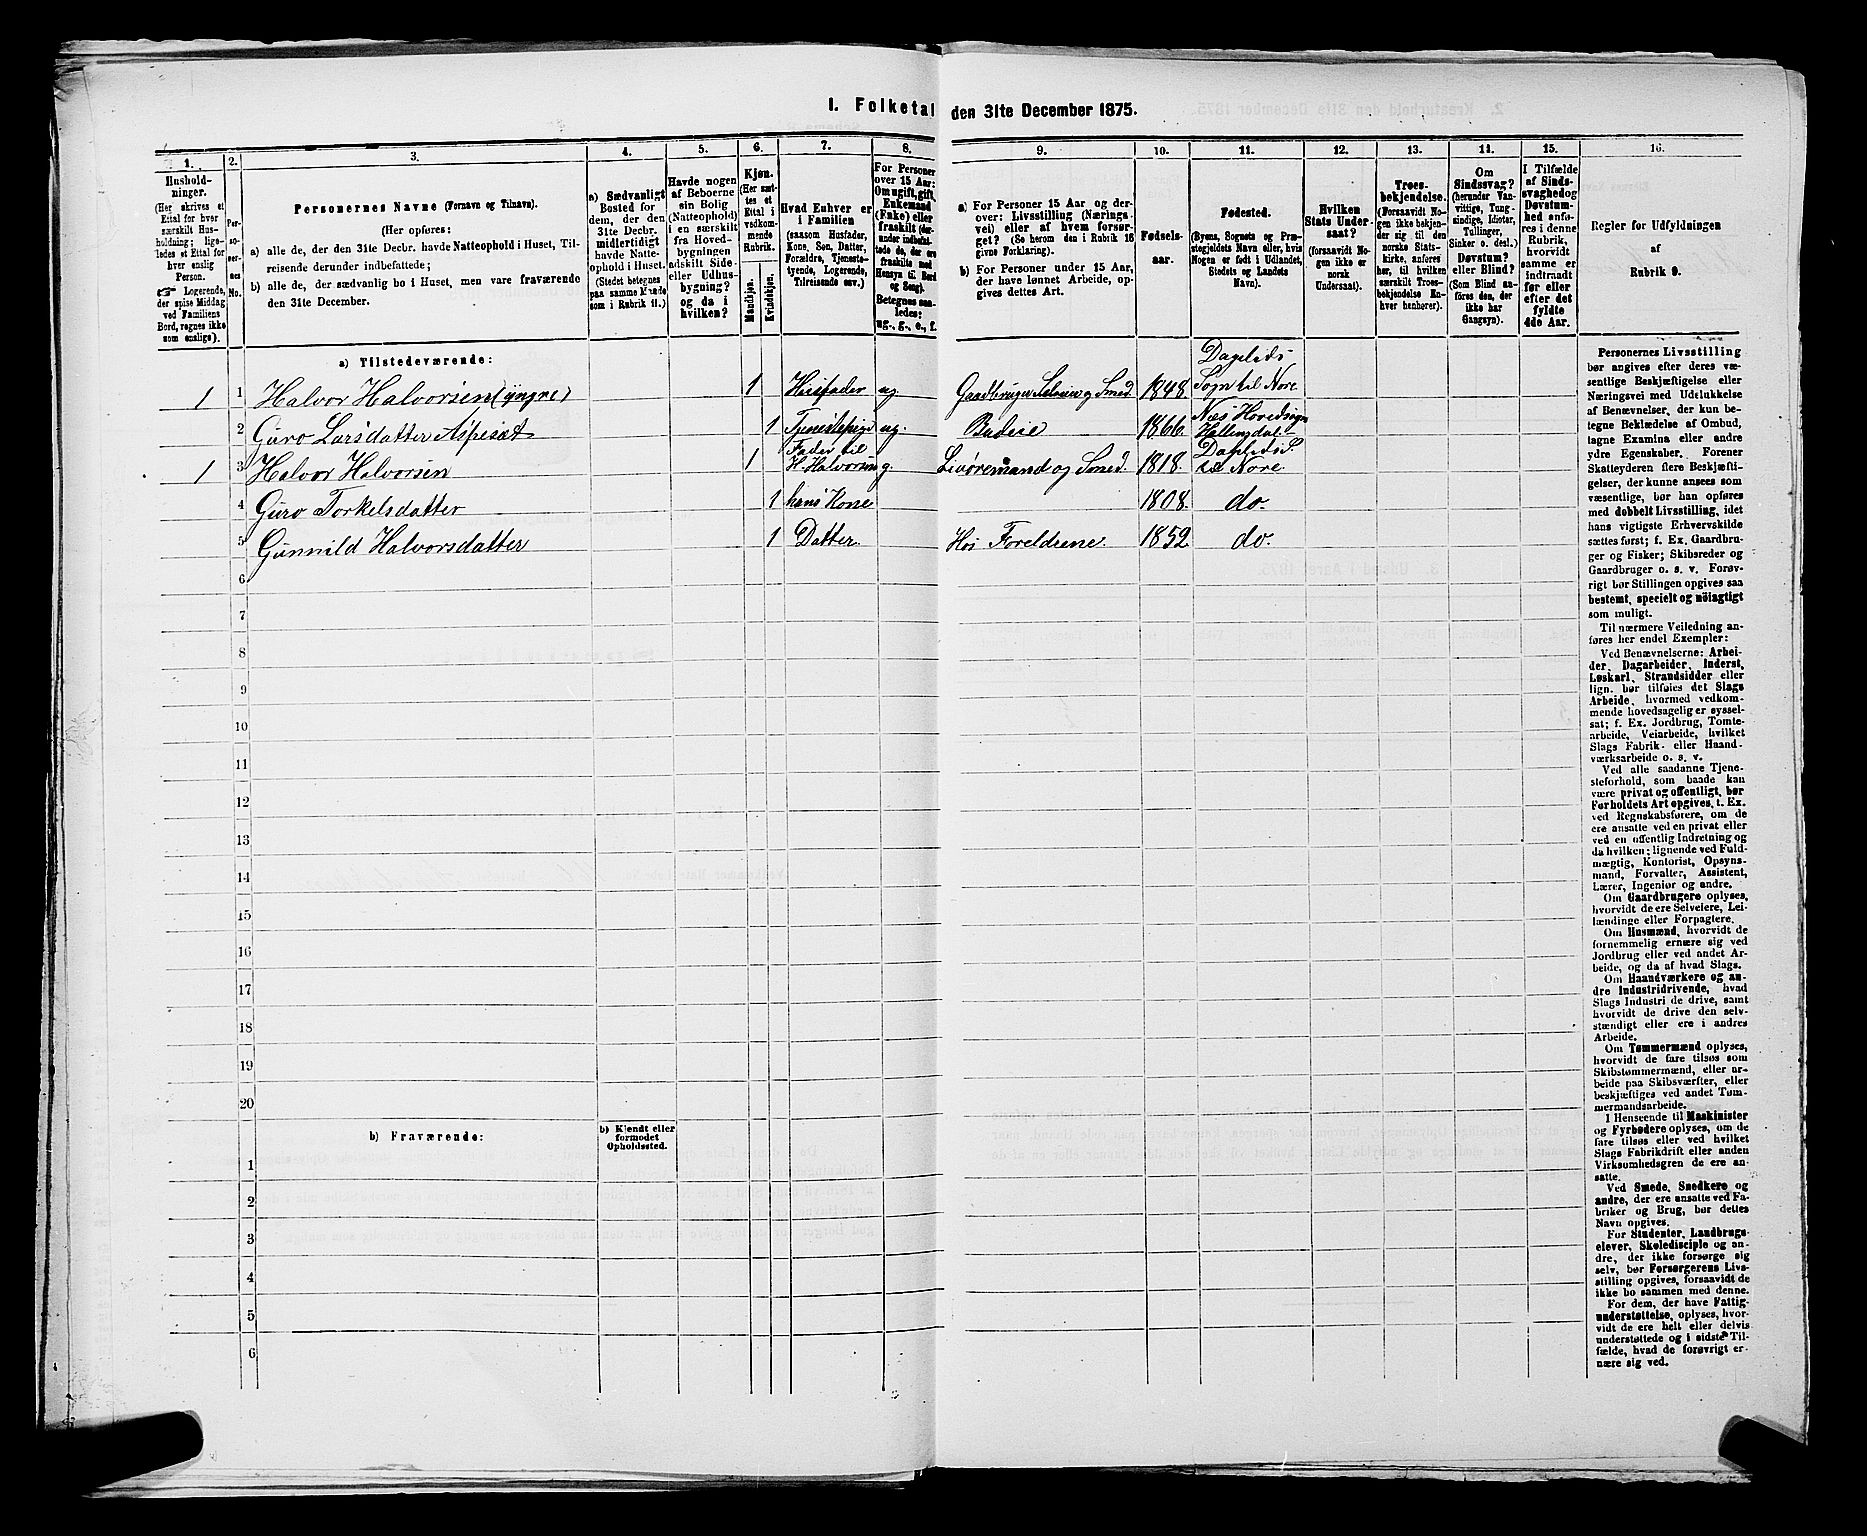 I. Folketal den 31te December 1875.
1. 2. 3. 4. 5. 6. 7. 8. 9. 10. 11. 12. 13. 14. 15. 16.
Hushold-
ninger.
(Her skrives et
Ettal for hver
særskilt Hus-
holdning; lige-
ledes et Ettal for
hver enslig
Person.
☞ Logerende,
der spise Middag
ved Familiens
Bord, regnes ikke
som enslige).
Per-
so-
ner-
nes
No.
Personernes Navne (Fornavn og Tilnavn).
(Her opføres:
a) alle de, der den 31te Decbr. havde Natteophold i Huset, Til-
reisende derunder indbefattede;
b) alle de, der sædvanlig bo i Huset, men vare fraværende
den 31te December.
a) Sædvanligt
Bosted for
dem, der den
31te Decbr.
midlertidigt
havde Natte-
ophold i Huset.
(Stedet betegnes
paa samme Maade
som i Rubrik 11.)
Havde nogen
af Beboerne
sin Bolig
(Natteophold)
i en særskilt
fra Hoved-
bygningen
adskilt Side-
eller Udhus-
bygning?
og da i
hvilken?
Kjøn.
(Her sæt-
tes et
Ettal i
vedkom-
mende
Rubrik.
Mandkjøn.
Kvindekjøn.
Hvad Enhver er
i Familien
(saasom Husfader,
Kone, Søn, Datter,
Forældre, Tjeneste-
tyende, Logerende,
Tilreisende osv.)
For Personer
over 15 Aar:
Om ugift, gift,
Enkemand
(Enke) eller
fraskilt (der-
under indbefat-
tede de, der ere
fraskilte med
Hensyn til Bord
og Seng).
Betegnes saa-
ledes:
ug., g., e., f.
a) For Personer 15 Aar og der-
over: Livsstilling (Nærings-
vei) eller af hvem forsør-
get? (Se herom den i Rubrik 16
givne Forklaring).
b) For Personer under 15 Aar,
der have lønnet Arbeide, op-
gives dettes Art.
Fødsels-
aar.
Fødested.
(Byens, Sognets og Præ-
stegjeldets Navn eller, hvis
Nogen er født i Udlandet,
Stedets og Landets
Navn).
Hvilken
Stats Under-
saat?
(forsaavidt No-
gen ikke er
norsk
Undersaat).
Troes-
bekjendelse.
(Forsaavidt No-
gen ikke bekjen-
der sig til den
norske Stats-
kirke, anføres
her, til hvilken
særskilt Troes-
bekjendelse En-
hver henhører).
Om
Sindssvag?
(herunder Van-
vittige, Tung-
sindige, Idioter,
Tullinger,
Sinker o. desl.)
Døvstum?
eller Blind?
(Som Blind an-
føres den, der
ikke har
Gangsyn).
I Tilfælde
af Sinds-
svaghed og
Døvstum-
hed anfø-
res i denne
Rubrik,
hvorvidt
samme er
indtraadt
før eller
efter det
fyldte
4de Aar.
Regler for Udfyldningen
af
Rubrik 9.
a) Tilstedeværende:
1 1 Halvor Halvorsen (yngre) 1 Husfader ug. Gaardbruger Selveier og Smed. 1848. Dagleds Sogn til Nore
2 Guro Larsdatter Aspesæt 1 Tjenestepige ug. Budeie 1866. Næs Hovedsogn Hallingdal
1 3 Halvor Halvorsen 1 Fader til H. Halvorsen g. Livøremand og Smed. 1818. Dagleds S. til Nore
4 Guro Torkelsdatter 1 hans Kone 1808. do.
5 Gunnild Halvorsdatter 1 Datter. Hos Foreldrene. 1852 do.
6
7
8
9
10
11
12
13
14
15
16
17
18
19
20
b) Fraværende:
b) Kjendt eller
formodet
Opholdssted.
1
2
3
4
5
6
Personernes Livsstilling
bør angives efter deres væ-
sentlige Beskjæftigelse eller
Næringsvei med Udelukkelse
af Benævnelser, der kun be-
tegne Beklædelse af Ombud,
tagne Examina eller andre
ydre Egenskaber. Forener
Skatteyderen flere Beskjæfti-
gelser, der kunne ansees som
væsentlige, bør han opføres
med dobbelt Livsstilling, idet
hans vigtigste Erhvervskilde
sættes først; f. Ex. Gaardbru-
ger og Fisker; Skibsreder og
Gaardbruger o. s. v. Forøv-
rigt bør Stillingen opgives saa
bestemt, specielt og nøiagtigt
som muligt.
Til nærmere Veiledning an-
føres her endel Exempler:
Ved Benævnelserne: Arbei-
der, Dagarbeider, Inderst,
Løskarl, Strandsidder eller
lign. bør tilføies det Slags
Arbeide, hvormed vedkom-
mende hovedsagelig er syssel-
sat; f. Ex. Jordbrug, Tomte-
arbeide, Veiarbeide, hvilket
Slags Fabrik- eller Haand-
værksarbeide o. s. v.
Ved alle saadanne Tjene-
steforhold, som baade kan
være privat og offentligt, bør
Forholdets Art opgives, t. Ex.
ved Regnskabsførere, om de
ere ansatte ved en privat eller
ved en offentlig Indretning og
da hvilken; lignende ved Fuld-
mægtig, Kontorist, Opsyns-
mand, Forvalter, Assistent,
Lærer, Ingeniør og andre.
Om Gaardbrugere oplyses,
hvorvidt de ere Selveiere, Lei-
lændinge eller Forpagtere.
Om Husmænd, hvorvidt de
fornemmelig ernære sig ved
Jordbrug eller ved andet Ar-
beide, og da af hvad Slags.
Om Haandværkere og an-
dre Industridrivende, hvad
Slags Industri de drive, samt
hvorvidt de drive den selv-
stændigt eller ere i andres
Arbeide.
Om Tømmermænd oplyses,
hvorvidt de fare tilsøs som
Skibstømmermænd, eller ar-
beide paa Skibsværfter, eller
beskjæftiges ved andet Tøm-
mermandsarbeide.
I Henseende til Maskinister
og Fyrbødere oplyses, om de
fare tilsøs eller ved hvilket
Slags Fabrikdrift eller anden
Virksomhedsgren de ere an-
satte.
Ved Smede, Snedkere og
andre, der ere ansatte ved Fa-
briker og Brug, bør dettes
Navn opgives.
For Studenter, Landbrugs-
elever, Skoledisciple og an-
dre, der ikke forsørge sig
selv, bør Forsørgerens Livs-
stilling opgives, forsaavidt de
ikke bo sammen med denne.
For dem, der have Fattig-
understøttelse, oplyses, hvor-
vidt de ere helt eller delvis
understøttede og i sidste Til-
fælde, hvad de forøvrigt er-
nære sig ved.